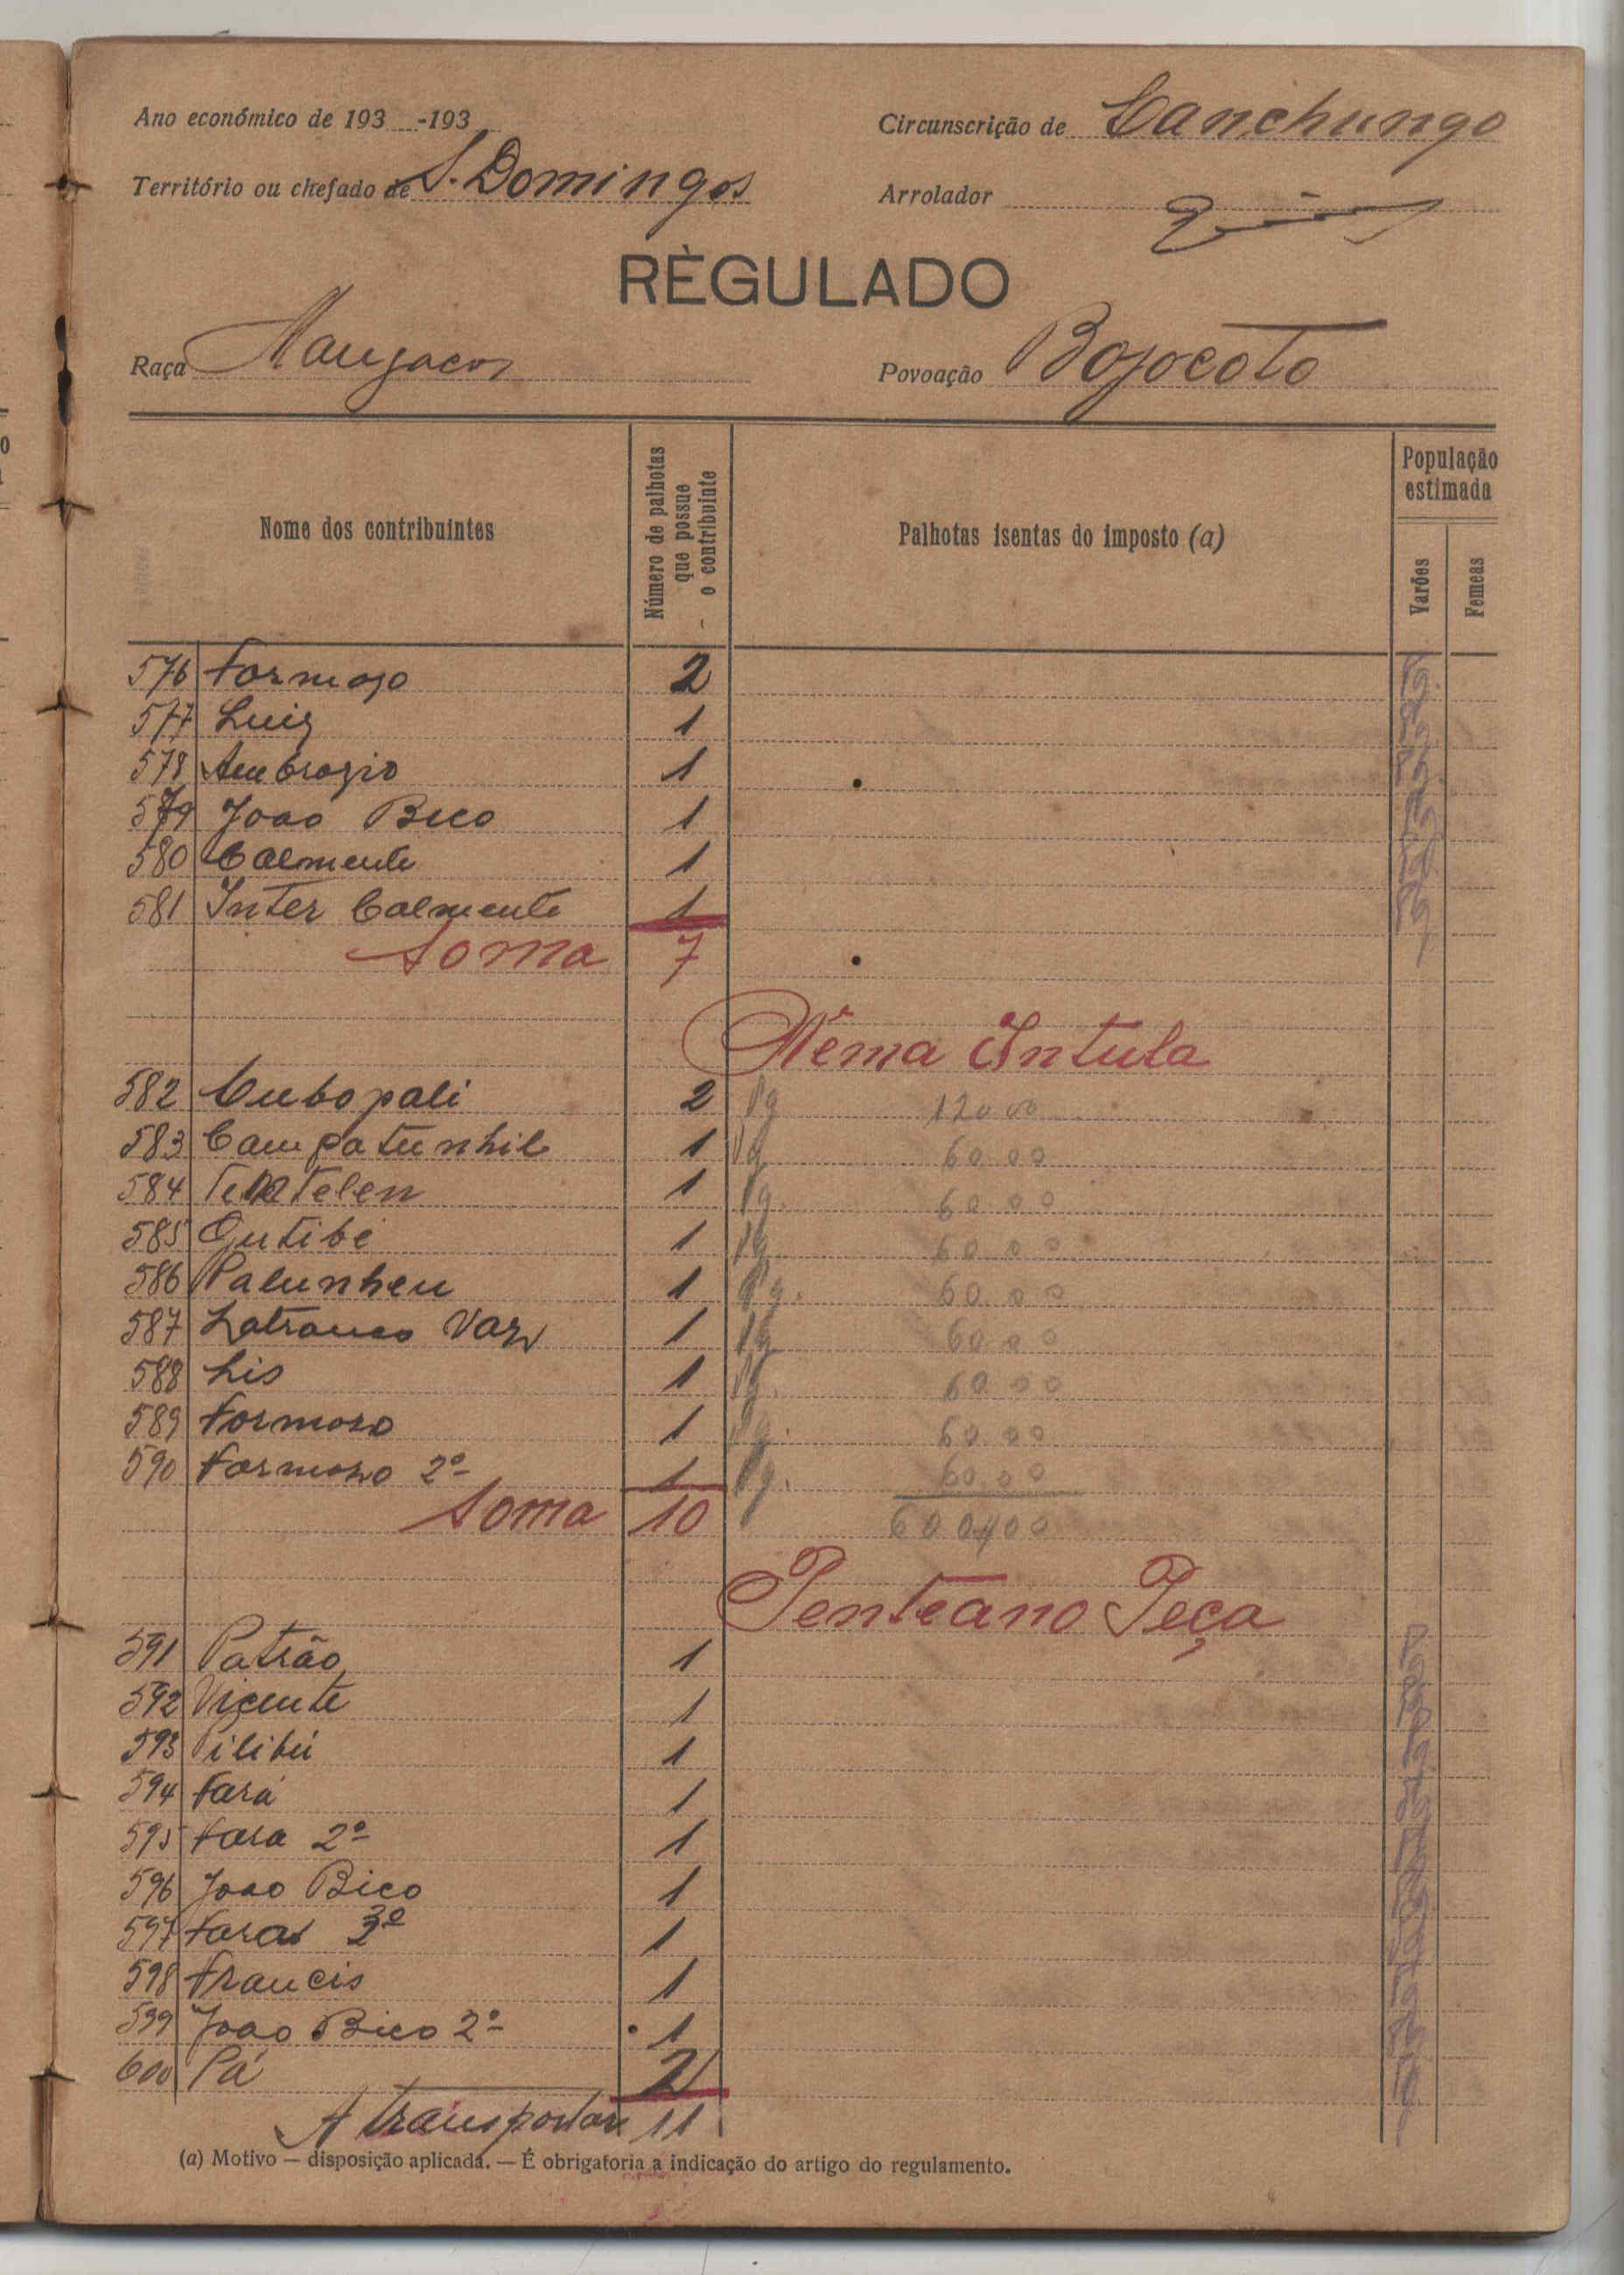 Ano económico de 193 -193
Circunscrição de Canchungo
Território ou chefado de S. Domingos
Arrolador
RÈGULADO
Raça Manjacos
Povoação Bojocoto
Nome dos contribuintes
Número de palhotas que possue o contribuinte
Palhotas isentas do imposto (a)
População estimada
Varões
Femeas
576 Formozo 2 Pg.
577 Luiz 1 Pg.
578 Ambrozio 1 Pg.
579 Joao Bico 1 Pg.
580 Calmente 1 Pg.
581 Inter Calmente 1 Pg.
Soma 7
Nema Intula
582 Cubopali 2 Pg 120.00
583 1 Pg 60.00
584 1 Pg. 60.00
585 Outibe 1 Pg 60.00
586 Palunheu 1 Pg. 60.00
587 Latranco Vaz 1 Pg 60.00
588 Lis 1 Pg. 60.00
589 Formozo 1 Pg. 60.00
590 Formozo 2º 1 Pg. 60.00
Soma 10 600,00
Penteano Peça
591 Patrão 1 Pg
592 Vicente 1 Pg
593 1 Pg
594 Fará 1 Pg
595 Fara 2º 1 Pg
596 Joao Bico 1 Pg
597 3º 1 Pg
598 Francis 1 Pg
599 Joao Bico 2º 1 Pg
600 Pá 2 Pg
A transportar 11
(a) Motivo — disposição aplicada. — É obrigatoria a indicação do artigo do regulamento.